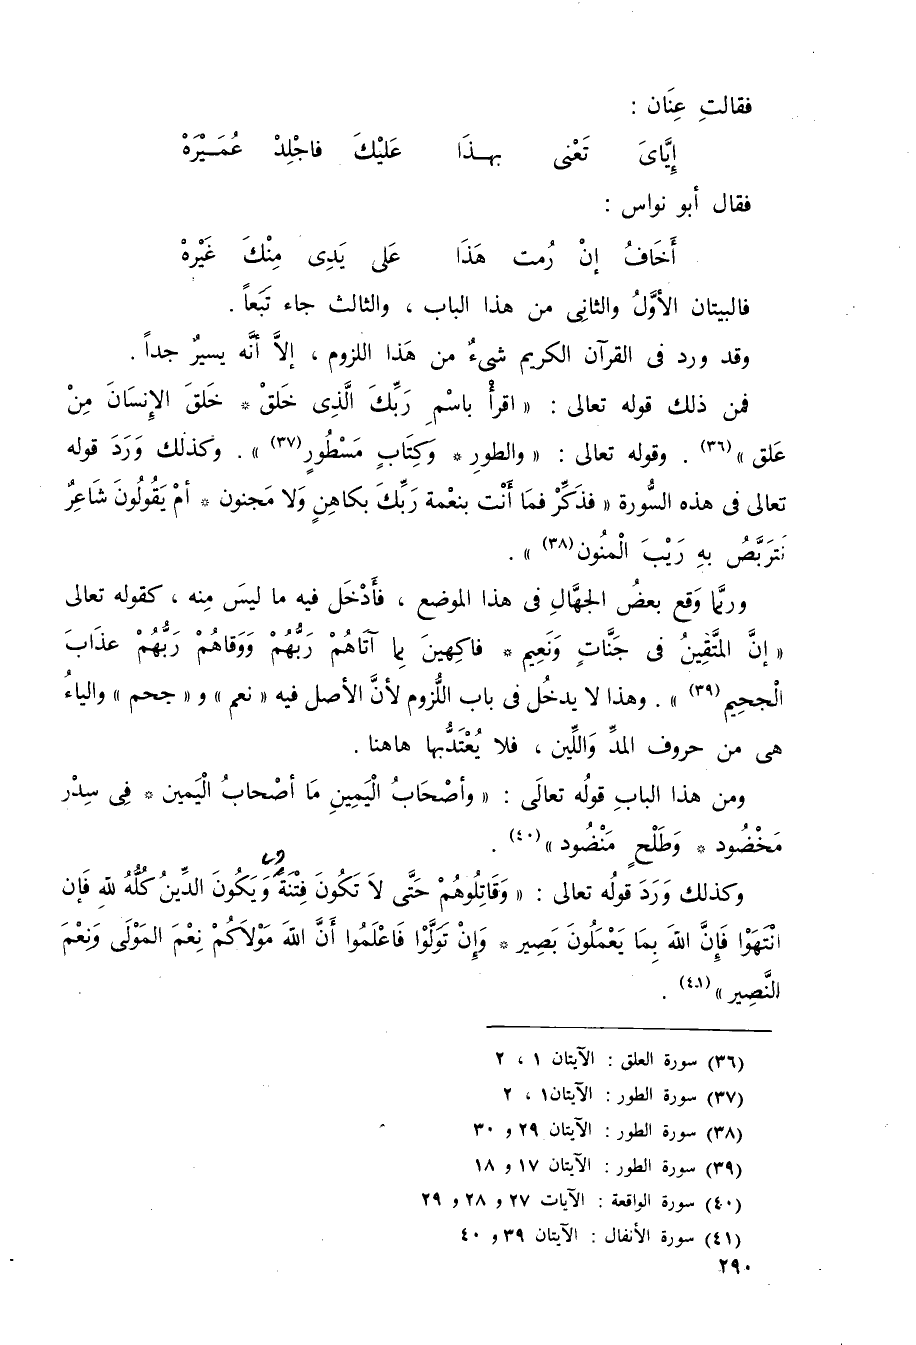 فقالتِ عِنَان :
إِيَّاىَ تَعْنِى بهـــذَا عَلَيْكَ فاجْلِدْ عُمَــيْرَهْ
فقال أبو نواس :
أَخَافُ إنْ رُمت هَذَا عَلى يَدِى مِنْكَ غَيْرهْ
فالبيتان الأوَّلُ والثانِى من هذا الباب ، والثالث جاء تَبَعاً .
وقد ورد فى القرآن الكريم شىءٌ من هَذا اللزوم ، إلاَّ أنَّه يسيرٌ جداً .
فمن ذلك قوله تعالى : « اقرأْ باسْمِ رَبِّكَ الَّذِى خَلقْ * خَلقَ الإنسَانَ مِنْ
عَلق »(٣٦) . وقوله تعالى : « والطورِ * وَكِتَابٍ مَسْطُورٍ(٣٧) » . وكذلك وَرَدَ قوله
تعالى فى هذه السُّورة « فذَكِّرْ فمَا أَنْت بنعْمة رَبِّكَ بكاهنٍ وَلا مَجنون * أمْ يَقُولُونَ شَاعِرٌ
نَترَبَّصُ بهِ رَيْبَ الْمنُون(٣٨) » .
وربَّما وَقع بعضُ الجهَّالِ فى هذا الموضع ، فأَدْخَل فيه ما ليسَ مِنه ، كقوله تعالى
« إنَّ المتَّقِينُ فى جَنَّاتٍ وَنَعِيم * فاكِهينَ بِما آتَاهُمْ رَبُّهُمْ وَوَقاهُمْ رَبُّهُمْ عذَابَ
الْجحِيمِ(٣٩) » . وهذا لا يدخُل فى باب اللُّزوم لأنَّ الأصل فيه « نعم » و « جحم » والياءُ
هى من حروف المدِّ وَاللِّين ، فلا يُعْتَدُّبها هاهنا .
ومن هذا البابِ قولُه تعالَى : « وأصْحَابُ الْيَمِينِ مَا أصْحابُ الْيَمين * فِى سِدْر
مَخْضُود * وَطَلْحٍ مَنْضُود »(٤٠) .
وكذلك وَرَدَ قولُه تعالى : « وَقَاتِلُوهُمْ حَتَّى لاَ تَكُونَ فِتْنَةٌ وَيَكُونَ الدِّينُ كُلُّهُ للهِ فَإن
انْتَهَوْا فَإنَّ اللهَ بِمَا يَعْمَلُونَ بَصِير * وَإنْ تَوَلَّوْا فَاعْلَمُوا أَنَّ اللهَ مَوْلاَكُمْ نِعْمَ المَوْلَى وَنِعْمَ
النَّصِير »(٤١) .
(٣٦) سورة العلق : الآيتان ١ ، ٢
(٣٧) سورة الطور : الآيتان١ ، ٢
(٣٨) سورة الطور : الآيتان ٢٩ و ٣٠
(٣٩) سورة الطور : الآيتان ١٧ و ١٨
(٤٠) سورة الواقعة : الآيات ٢٧ و ٢٨ و ٢٩
(٤١) سورة الأنفال : الآيتان ٣٩ و ٤٠
٢٩٠